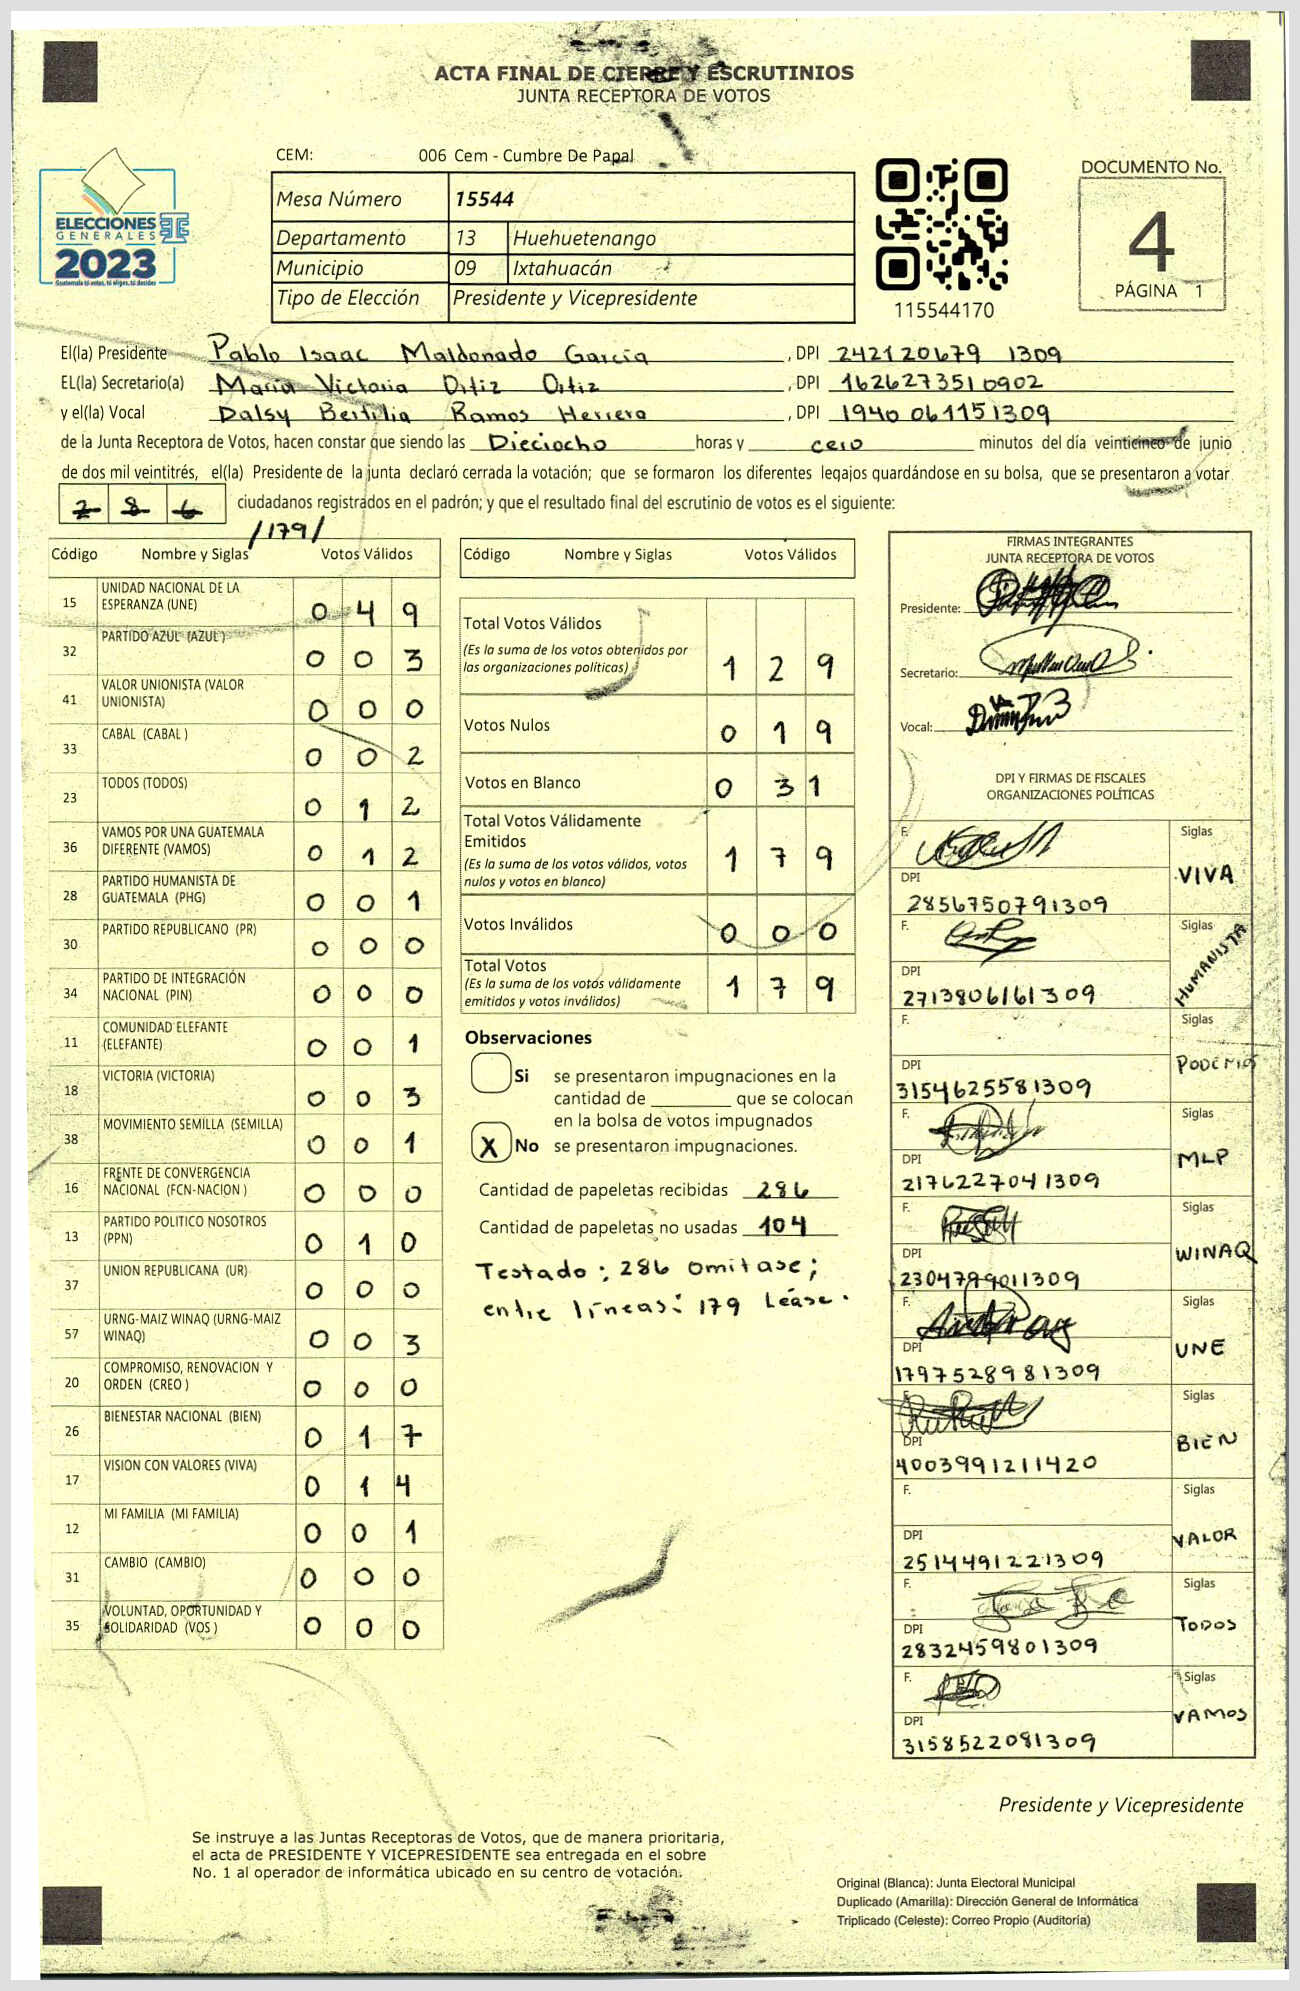 ACTA FINAL DE CIERRE Y ESCRUTINIOS
JUNTA RECEPTORA DE VOTOS
CEM: 006 Cem - Cumbre De Papal
ELECCIONES
GENERALES
2023
Guatemala tú votas, tú eliges, tú decides
Mesa Número 15544
Departamento 13 Huehuetenango
Municipio 09 Ixtahuacán
Tipo de Elección Presidente y Vicepresidente
115544170
DOCUMENTO No.
4
PÁGINA 1
El(la) Presidente Pablo Isaac Maldonado García , DPI 242120679 1309
EL(la) Secretario(a) María Victoria Ortiz Ortiz , DPI 1626273510902
y el(la) Vocal Dalsy Bertilia Ramos Herrera , DPI 1940 061151309
de la Junta Receptora de Votos, hacen constar que siendo las Dieciocho horas y cero minutos del día veinticinco de junio
de dos mil veintitrés, el(la) Presidente de la junta declaró cerrada la votación; que se formaron los diferentes legajos quardándose en su bolsa, que se presentaron a votar
286 ciudadanos registrados en el padrón; y que el resultado final del escrutinio de votos es el siguiente:
/179/
Código Nombre y Siglas Votos Válidos
15 UNIDAD NACIONAL DE LA ESPERANZA (UNE) 0 4 9
32 PARTIDO AZUL (AZUL) 0 0 3
41 VALOR UNIONISTA (VALOR UNIONISTA) 0 0 0
33 CABAL (CABAL ) 0 0 2
23 TODOS (TODOS) 0 1 2
36 VAMOS POR UNA GUATEMALA DIFERENTE (VAMOS) 0 1 2
28 PARTIDO HUMANISTA DE GUATEMALA (PHG) 0 0 1
30 PARTIDO REPUBLICANO (PR) 0 0 0
34 PARTIDO DE INTEGRACIÓN NACIONAL (PIN) 0 0 0
11 COMUNIDAD ELEFANTE (ELEFANTE) 0 0 1
18 VICTORIA (VICTORIA) 0 0 3
38 MOVIMIENTO SEMILLA (SEMILLA) 0 0 1
16 FRENTE DE CONVERGENCIA NACIONAL (FCN-NACION ) 0 0 0
13 PARTIDO POLITICO NOSOTROS (PPN) 0 1 0
37 UNION REPUBLICANA (UR) 0 0 0
57 URNG-MAIZ WINAQ (URNG-MAIZ WINAQ) 0 0 3
20 COMPROMISO, RENOVACION Y ORDEN (CREO ) 0 0 0
26 BIENESTAR NACIONAL (BIEN) 0 1 7
17 VISION CON VALORES (VIVA) 0 1 4
12 MI FAMILIA (MI FAMILIA) 0 0 1
31 CAMBIO (CAMBIO) 0 0 0
35 VOLUNTAD, OPORTUNIDAD Y SOLIDARIDAD (VOS ) 0 0 0
Código Nombre y Siglas Votos Válidos
Total Votos Válidos
(Es la suma de los votos obtenidos por
las organizaciones políticas) 1 2 9
Votos Nulos 0 1 9
Votos en Blanco 0 3 1
Total Votos Válidamente
Emitidos
(Es la suma de los votos válidos, votos
nulos y votos en blanco) 1 7 9
Votos Inválidos 0 0 0
Total Votos
(Es la suma de los votos válidamente
emitidos y votos inválidos) 1 7 9
Observaciones
Si se presentaron impugnaciones en la
cantidad de ________ que se colocan
en la bolsa de votos impugnados
X No se presentaron impugnaciones.
Cantidad de papeletas recibidas 286
Cantidad de papeletas no usadas 104
Testado: 286 omitase;
entre líneas: 179 Léase.
FIRMAS INTEGRANTES
JUNTA RECEPTORA DE VOTOS
Presidente:
Secretario:
Vocal:
DPI Y FIRMAS DE FISCALES
ORGANIZACIONES POLÍTICAS
F. Siglas
DPI VIVA
2856750791309
F. Siglas
DPI HUMANISTA
2713806161309
F. Siglas
DPI PODEMOS
3154625581309
F. Siglas
DPI MLP
2176227041309
F. Siglas
DPI WINAQ
2304799011309
F. Siglas
DPI UNE
1797528981309
F. Siglas
DPI BIEN
4003991211420
F. Siglas
DPI VALOR
2514491221309
F. Siglas
DPI TODOS
2832459801309
F. Siglas
DPI VAMOS
3158522081309
Presidente y Vicepresidente
Se instruye a las Juntas Receptoras de Votos, que de manera prioritaria,
el acta de PRESIDENTE Y VICEPRESIDENTE sea entregada en el sobre
No. 1 al operador de informática ubicado en su centro de votación.
Original (Blanca): Junta Electoral Municipal
Duplicado (Amarilla): Dirección General de Informática
Triplicado (Celeste): Correo Propio (Auditoría)